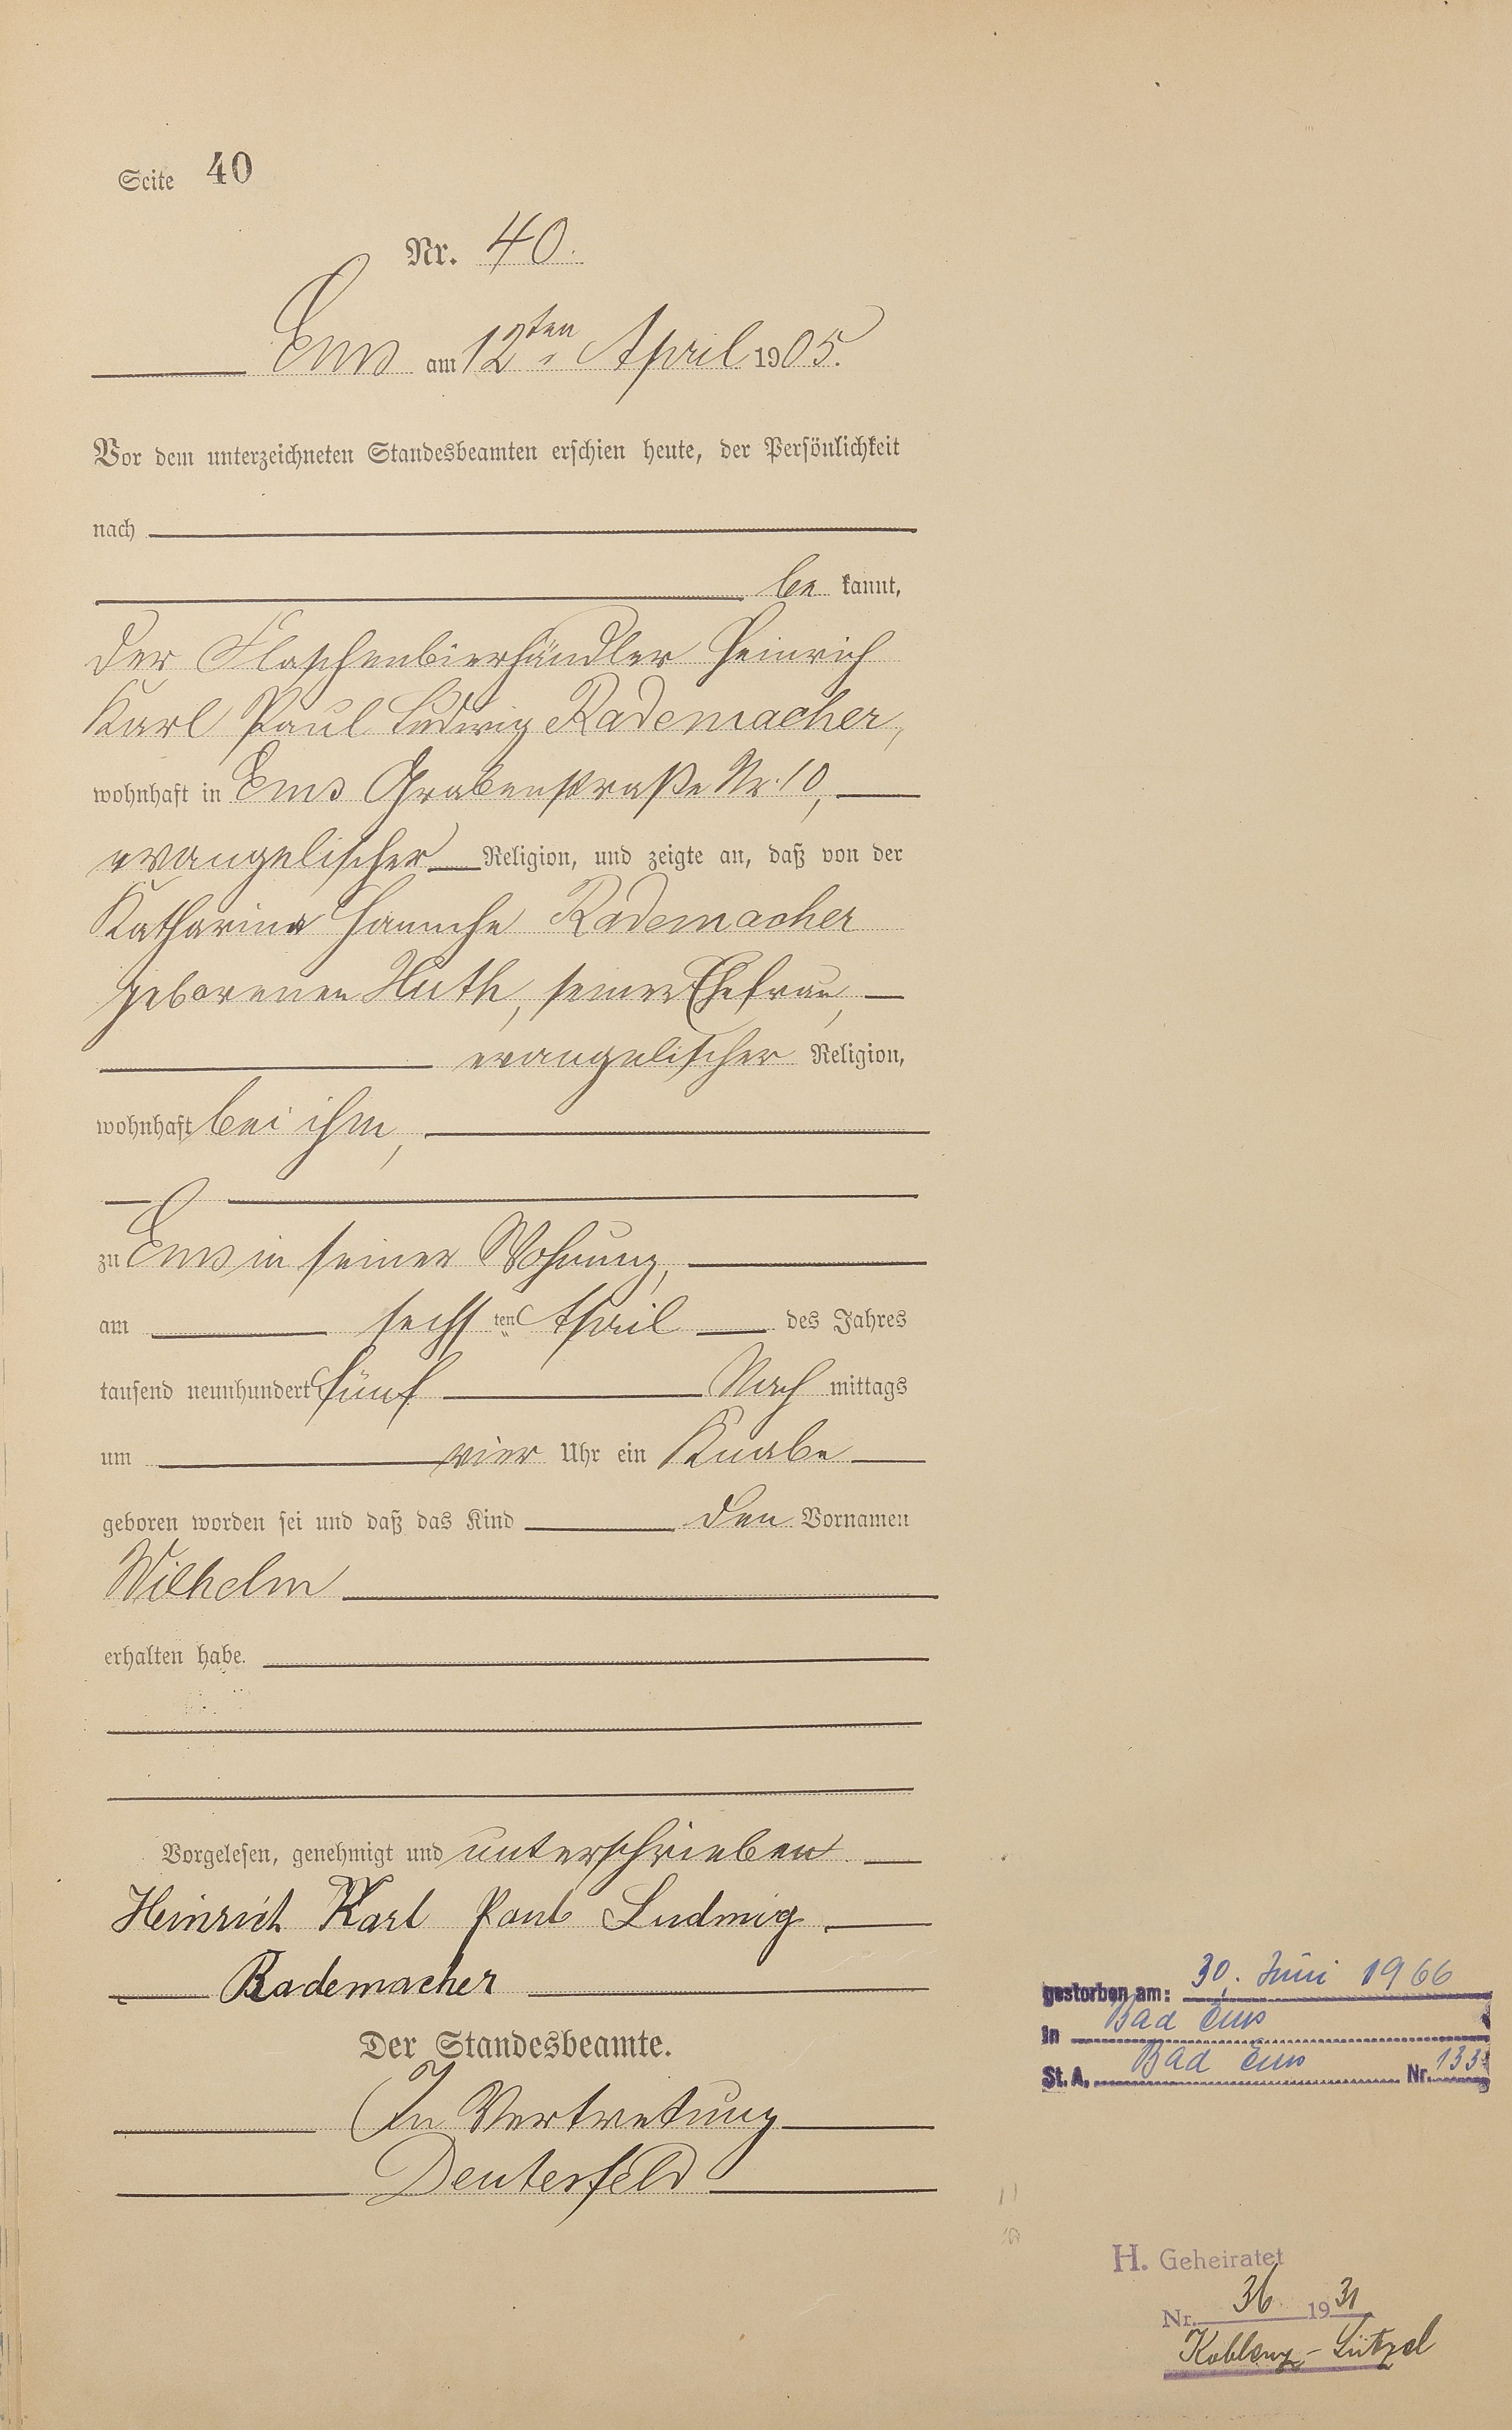 Seite 40
Nr. 40.
Ems am 12ten April 1905.
Vor dem unterzeichneten Standesbeamten erschien heute, der Persönlichkeit
nach
be kannt,
der Flaschenbierhändler Heinrich
Karl Paul Ludwig Rademacher,
wohnhaft in Ems Grabenstraße Nr. 10,
evangelischer Religion, und zeigte an, daß von der
Katharina Rademacher
geborenen Huth, seiner Ehefrau,
evangelischer Religion,
wohnhaft bei ihm,
zu Ems in seiner Wohnung,
am sechs ten April des Jahres
tausend neunhundert fünf Nach mittags
um vier Uhr ein Knabe
geboren worden sei und daß das Kind den Vornamen
Wilhelm
erhalten habe.
Vorgelesen, genehmigt und unterschrieben
Heinrich Karl Paul Ludwig
Rademacher
Der Standesbeamte.
In Vertretung
Deuterfeld
gestorben am: 30. Juni 1966
in Bad Ems
St. A. Bad Ems Nr. 133
H. Geheiratet
Nr. 36 1931
Koblenz-Lützel